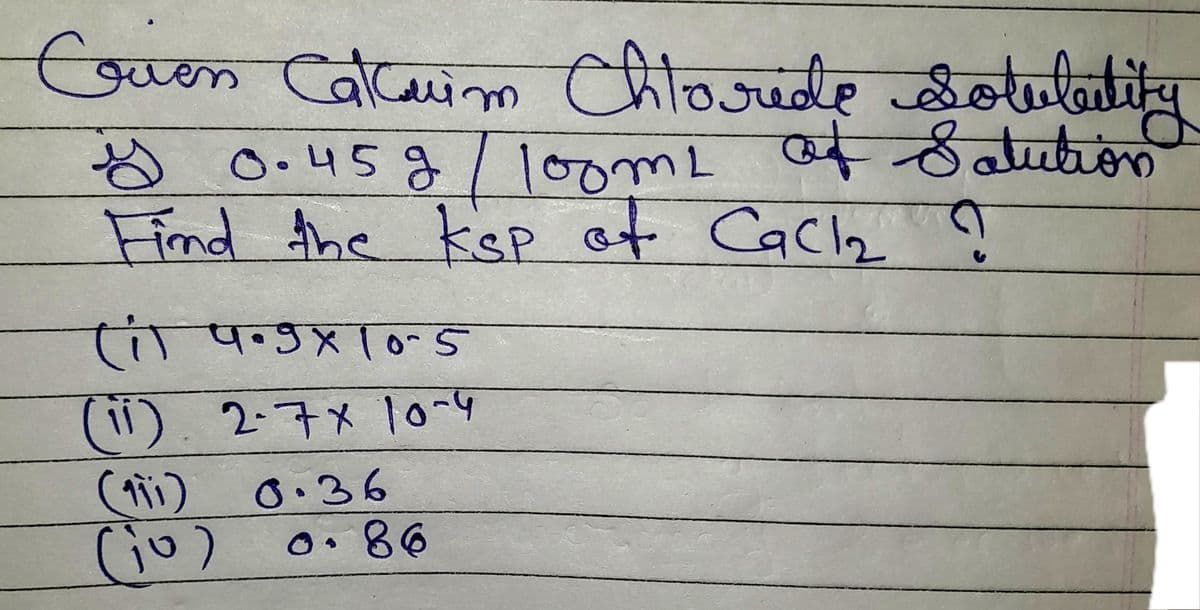 Given Calcuim Chloride Solubility
is 0.45 g / 100mL of Solution
Find the ksp of CaCl2 ?
(i) 4.9x10-5
(ii) 2.7x 10-4
(iii) 0.36
(iv) 0.86